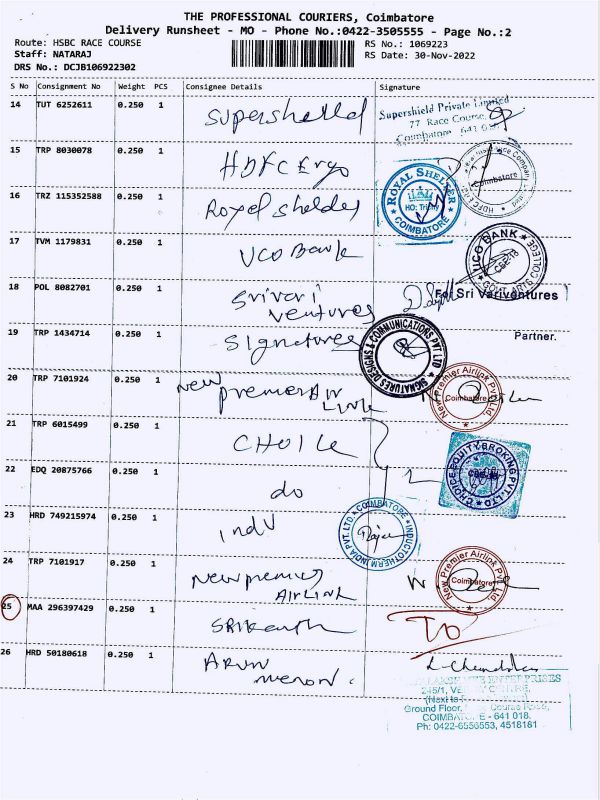 THE PROFESSIONAL COURIERS, Coimbatore
Delivery Runsheet - MO - Phone No.:0422-3505555 - Page No.:2
Route: HSBC RACE COURSE RS No.: 1069223
Staff: NATARAJ RS Date: 30-Nov-2022
DRS No.: DCJB106922302
S No Consignment No Weight PCS Consignee Details Signature
14 TUT 6252611 0.250 1 Supershelld
Supershield Private Limited
77 Race Course,
Coimbatore 641 018
15 TRP 8030078 0.250 1 HDFC Ergo
Coimbatore
16 TRZ 115352588 0.250 1 Royal shelder
ROYAL SHELTER
HO: Trichy
COIMBATORE
17 TVM 1179831 0.250 1 UCO Bank
UCO BANK
CBE-18
GOVT. ARTS COLLEGE
18 POL 8082701 0.250 1 Srivari
ventures
For Sri Variventures
19 TRP 1434714 0.250 1 Signatures
SIGNATURES DESIGNS & COMMUNICATIONS PVT LTD
Partner.
20 TRP 7101924 0.250 1 New
Premier Air
Link
New Premier Airlink Pvt. Ltd
Coimbatore
21 TRP 6015499 0.250 1 CHOICE
CHOICE EQUITY BROKING PVT. LTD
22 EDQ 20875766 0.250 1 do
23 HRD 749215974 0.250 1 indu
INDUCTOTHERM INDIA PVT. LTD.
COIMBATORE
24 TRP 7101917 0.250 1 New premier
AIRLINK
New Premier Airlink Pvt. Ltd
Coimbatore
25 MAA 296397429 0.250 1 SRikanth
TO
26 HRD 50180618 0.250 1 ARUN
menon.
ENTERPRISES
245/1,
(Next to
Ground Floor, Course Road,
COIMBATORE - 641 018.
Ph: 0422-6556553, 4518181